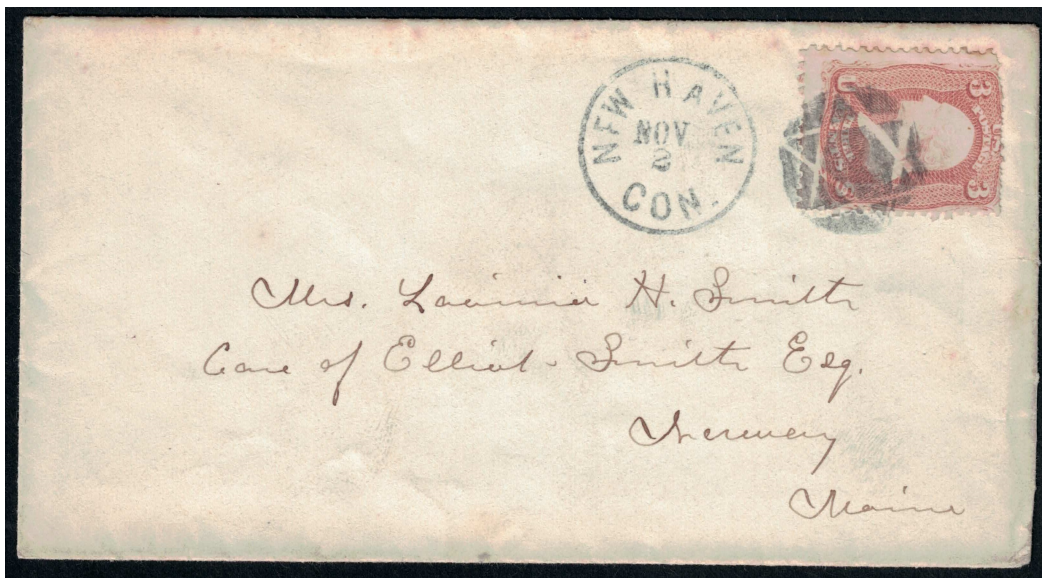 NEW HAVEN
NOV
2
CON.
3 3
U S
Mrs. H. Smith
Care of Elliot Smith Esq.
Norway
Maine